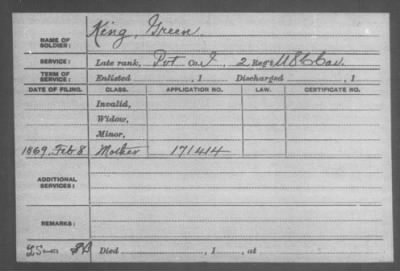 NAME OF SOLDIER: King, Green.
SERVICE: Late rank, Pvt Co. I, 2 Reg't U S C Cav.
TERM OF SERVICE: Enlisted , 1 Discharged , 1
DATE OF FILING. CLASS. APPLICATION NO. LAW. CERTIFICATE NO.
Invalid,
Widow,
Minor,
1869, Feb 8. Mother 171414
ADDITIONAL SERVICES:
REMARKS:
Died , 1 , at